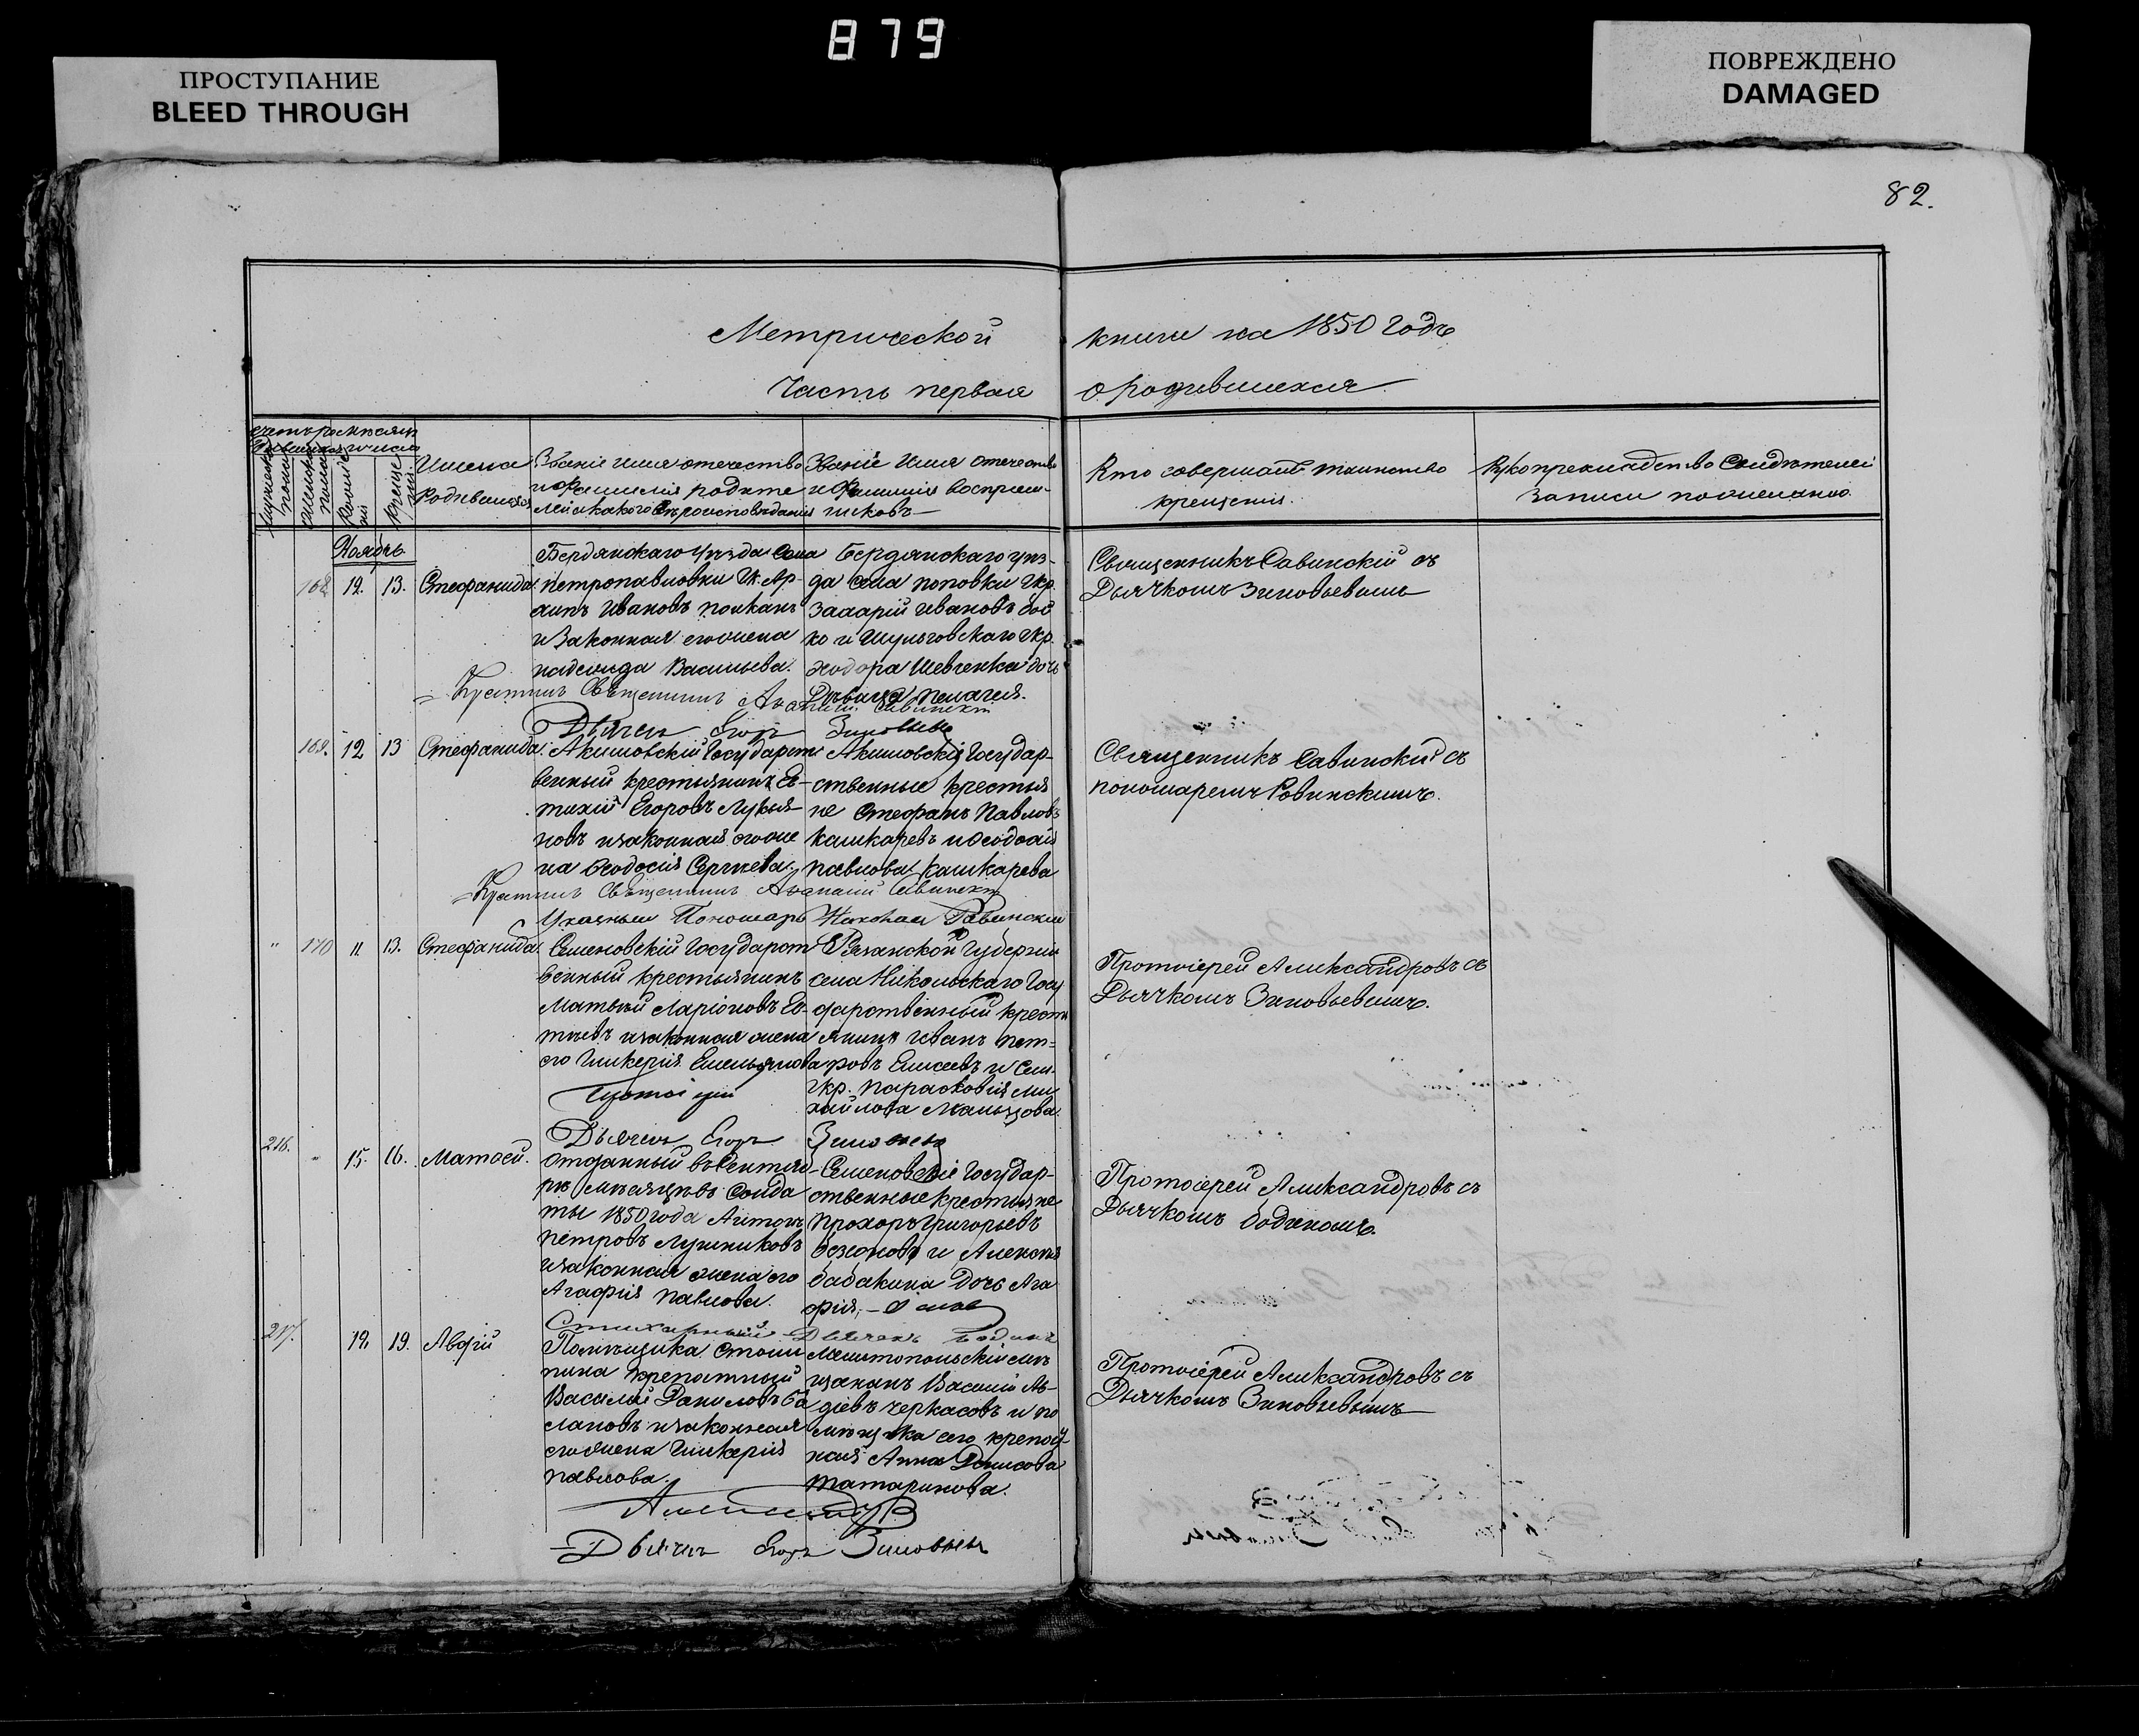 879
ПРОСТУПАНИЕ
BLEED THROUGH
ПОВРЕЖДЕНО
DAMAGED
82.
Метрической книги на 1850 годъ
Часть первая о родившихся
Имена
Родившихся
Званіе имя отечество
и Фамилія родите
лей и какого Вѣроисповѣданія
Званіе Имя отечество
и Фамилія восприем-
никовъ
Кто совершалъ таинство
крещенія.
Рукоприкладство Свидѣтелей
записи по желанію
Ноябрь
168 12. 13. Стефанида.
Бердянскаго уѣзда Села
петропавловки Г. К. Ар-
хипъ Ивановъ
и законная его жена
надежда Васильева.
Бердянскаго уѣз-
да села поповки Г кр.
Захарій Ивановъ Бой
ко и Шульговскаго Г кр.
Ѳодора Шевченка дочь
Дѣвица пелагея.
Священникъ Савинскій съ
Дьячкомъ Зиновьевымъ
Крестилъ Священникъ Аѳанасій Савинскій
Дьячекъ Егоръ Зиновьевъ
169. 12 13 Стефанида.
Акимовскій Государст-
венный крестьянинъ Ев-
тихій Егоровъ Лукья-
новъ и законная его же
на Ѳеодосія Сергѣева.
Акимовскія Государ-
ственные крестья
не Стефанъ Павловъ
кашкаревъ и Ѳеодосія
павлова кашкарева
Священникъ Савинскій съ
пономаремъ Ровинскимъ.
Крестилъ Священникъ Аѳанасій Савинскій
Указный Пономарь Николай Равинскій
" 170 11. 13. Стефанида.
Семеновскій Государст
венный крестьянинъ
Матвѣй Ларіоновъ Ев-
тѣевъ и законная жена
его Гликерія Емельянова
Рязанской Губерніи
села Никольскаго Госу
дарственный кресть
янинъ Иванъ пет-
ровъ Елисеевъ и Сем.
Г кр. Парасковія Ми
хайлова Мальцова.
Протоіерей Александровъ съ
Дьячкомъ Зиновьевымъ.
Протоіерей
Дьячекъ Егоръ Зиновьевъ
216. " 15. 16. Матѳей.
Отданный въ Сентяб
рѣ мѣсяцѣ въ Солда
ты 1850 года Антонъ
петровъ Лушниковъ
и законная жена его
Агафія павлова.
Семеновскіе Государ-
ственные крестьяне
прохоръ Григорьевъ
и Алексѣя
бабакина дочь Ага
фія.
Протоіерей Александровъ съ
Дьячкомъ Бодянскимъ.
Стихарный Дьячекъ
217. 12. 19. Авдій
Помѣщика
пина крепостный
Василій Даниловъ Ба
лановъ и законная
его жена Гликерія
павлова.
Мелитопольскій мѣ
щанинъ Василій Ав-
діевъ Черкасовъ и по
мѣщика сего крепост
ная Анна Денисова
татаринова.
Протоіерей Александровъ съ
Дьячкомъ Зиновьевымъ
Александровъ
Дьячекъ Егоръ Зиновьевъ